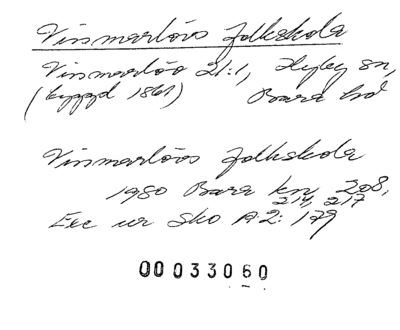 Vismarlövs folkskola
Vismarlöv 21:1, Hyby sn,
(byggd 1861) Bara hd
Vismarlövs folkskola
1980 Bara kn, 208,
214, 217
Exc ur Sko A 2: 179
00033060